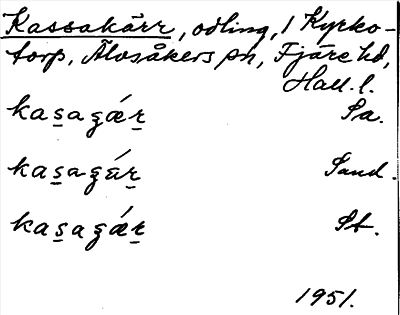 Kassakärr, odling, 1 Kyrko-
torp, Älvsåkers sn, Fjäre hd,
Hall. l.
kasagǽr Sa.
kasagú̄r Sand.
kasagǽr St.
1951.